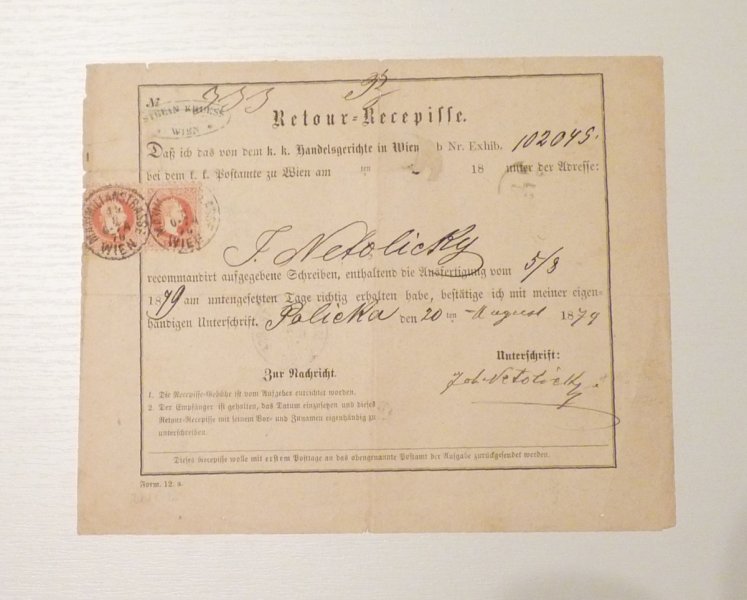 № 333
WIEN
Retour-Recepisse.
Daß ich das von dem k. k. Handelsgerichte in Wien b Nr. Exhib. 102045.
bei dem k. k. Postamte zu Wien am ten 18 unter der Adresse:
MAXIMILIANSTRASSE
WIEN
WIEN
J. Netolicky
recommandirt aufgegebene Schreiben, enthaltend die Ausfertigung vom 5/8
1879 am untengesetzten Tage richtig erhalten habe, bestätige ich mit meiner eigen-
händigen Unterschrift. Policka den 20 ten August 1879
Zur Nachricht.
Unterschrift:
1. Die Recepisse-Gebühr ist vom Aufgeber entrichtet worden.
Joh. Netolicky
2. Der Empfänger ist gehalten, das Datum einzusetzen und dieses
Retour-Recepisse mit seinem Vor- und Zunamen eigenhändig zu
unterschreiben.
Dieses Recepisse wolle mit erstem Posttage an das obengenannte Postamt der Aufgabe zurückgesendet werden.
Form. 12. a.